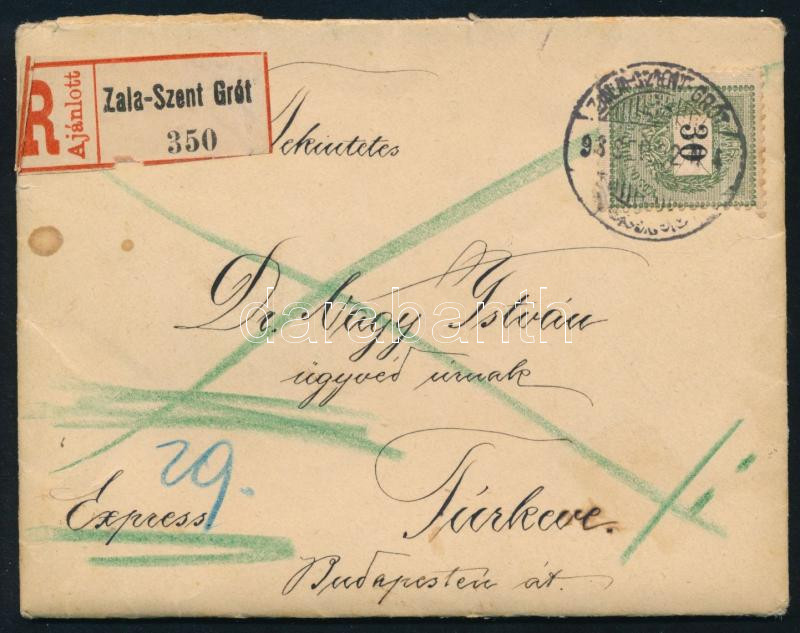 R
Ajánlott
Zala-Szent Grót
350
ZALA-SZENT-GRÓT
93
30
Tekintetes
Dr. Nagy István
ügyvéd úrnak
29.
Express
Túrkeve.
Budapesten át.
darabanth